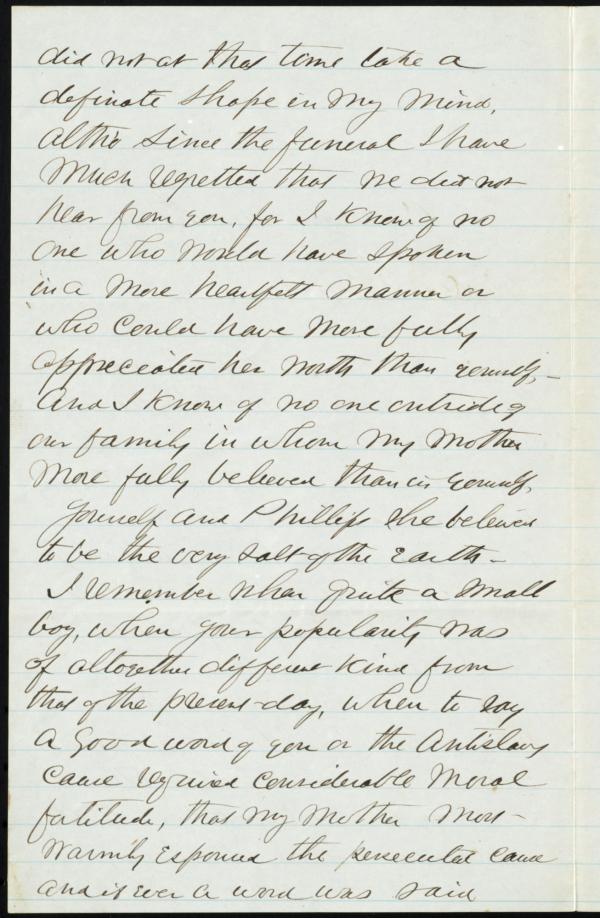 did not at that time take a
definate shape in my mind,
altho since the funeral I have
much regretted that we did not
hear from you, for I know of no
one who would have spoken
in a more heartfelt manner or
who could have more fully
appreciated her worth than yourself, –
and I know of no one outside of
our family in whom my mother
more fully believed than in yourself.
Yourself and Phillips she believed
to be the very salt of the earth –
I remember when quite a small
boy, when your popularity was
of altogether different kind from
that of the present day, when to say
a good word of you or the Antislavery
cause required considerable moral
fortitude, that my mother most
warmly espoused the persecuted cause
and if ever a word was said